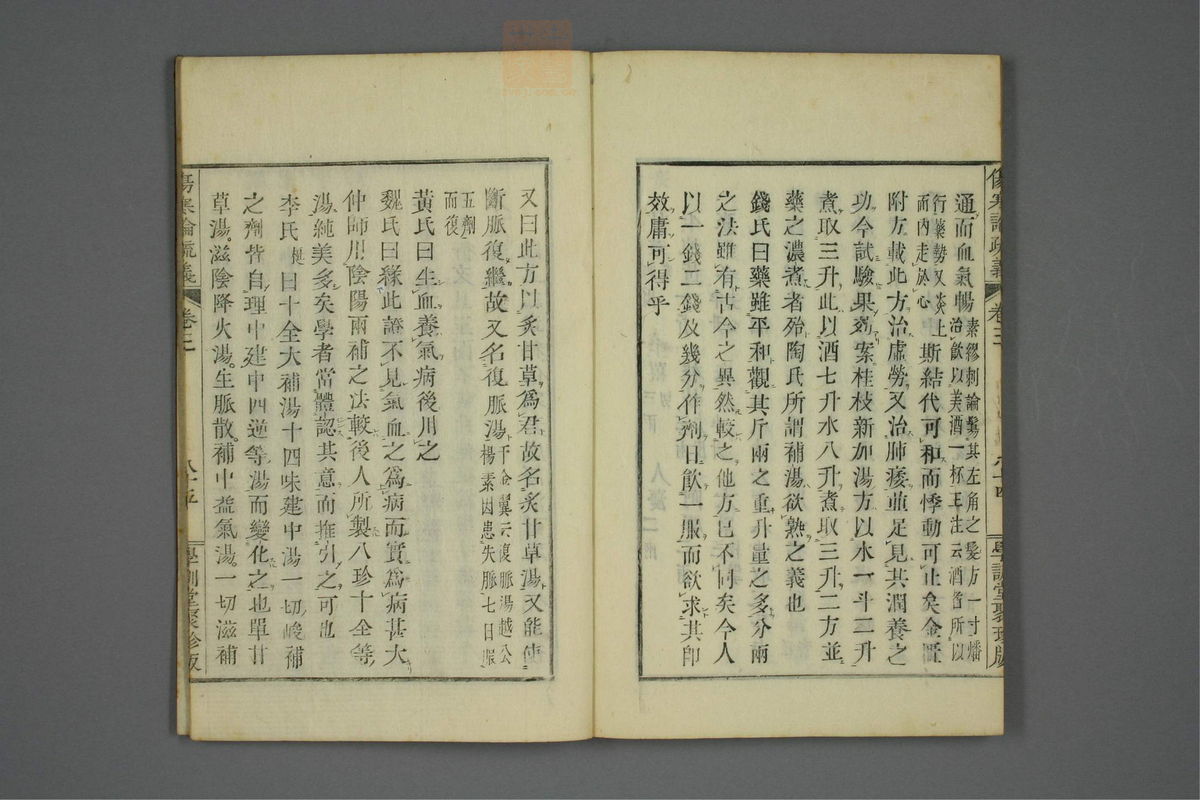 傷寒論疏義　卷三　八十四　學訓堂聚珍版
通而血氣暢素繆刺論鬄其左角之髮方一寸燔
治飲以美酒一杯王注云酒者所以
行藥勢又炎上
而內走於心斯結代可和而悸動可止矣金匱
附方載此方治虛勞又治肺痿並足見其潤養之
功今試驗果爾案桂枝新加湯方以水一斗二升
煮取三升此以酒七升水八升煮取三升二方並
藥之濃煮者殆陶氏所謂補湯欲熟之義也
錢氏曰藥雖平和觀其斤兩之重升量之多分兩
之法雖有古今之異然較之他方已不同矣今人
以一錢二錢及幾分作劑日飲一服而欲求其印
效庸可得乎
又曰此方以炙甘草爲君故名炙甘草湯又能使
斷脈復繼故又名復脈湯千金翼云復脈湯越公
楊素因患失脈七日服
五劑
而復
黃氏曰生血養氣病後用之
魏氏曰緣此證不見氣血之爲病而實爲病甚大
仲師用陰陽兩補之法較後人所製八珍十全等
湯純美多矣學者當體認其意而推引之可也
李氏梴曰十全大補湯十四味建中湯一切峻補
之劑皆自理中建中四逆等湯而變化之也單甘
草湯滋陰降火湯生脈散補中益氣湯一切滋補
傷寒論疏義　卷三　八十五　學訓堂聚珍版